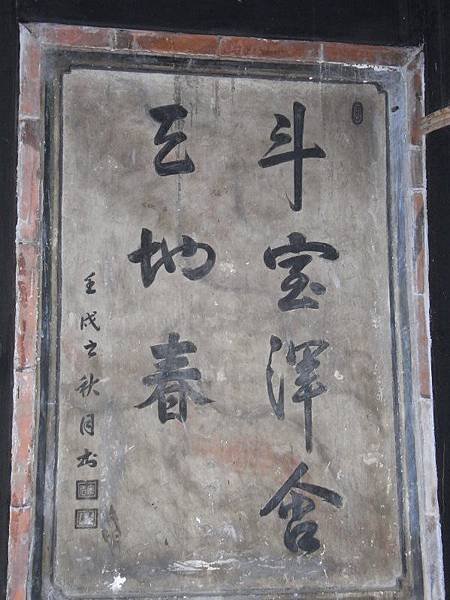 斗室渾含
天地春
壬戌之秋月書